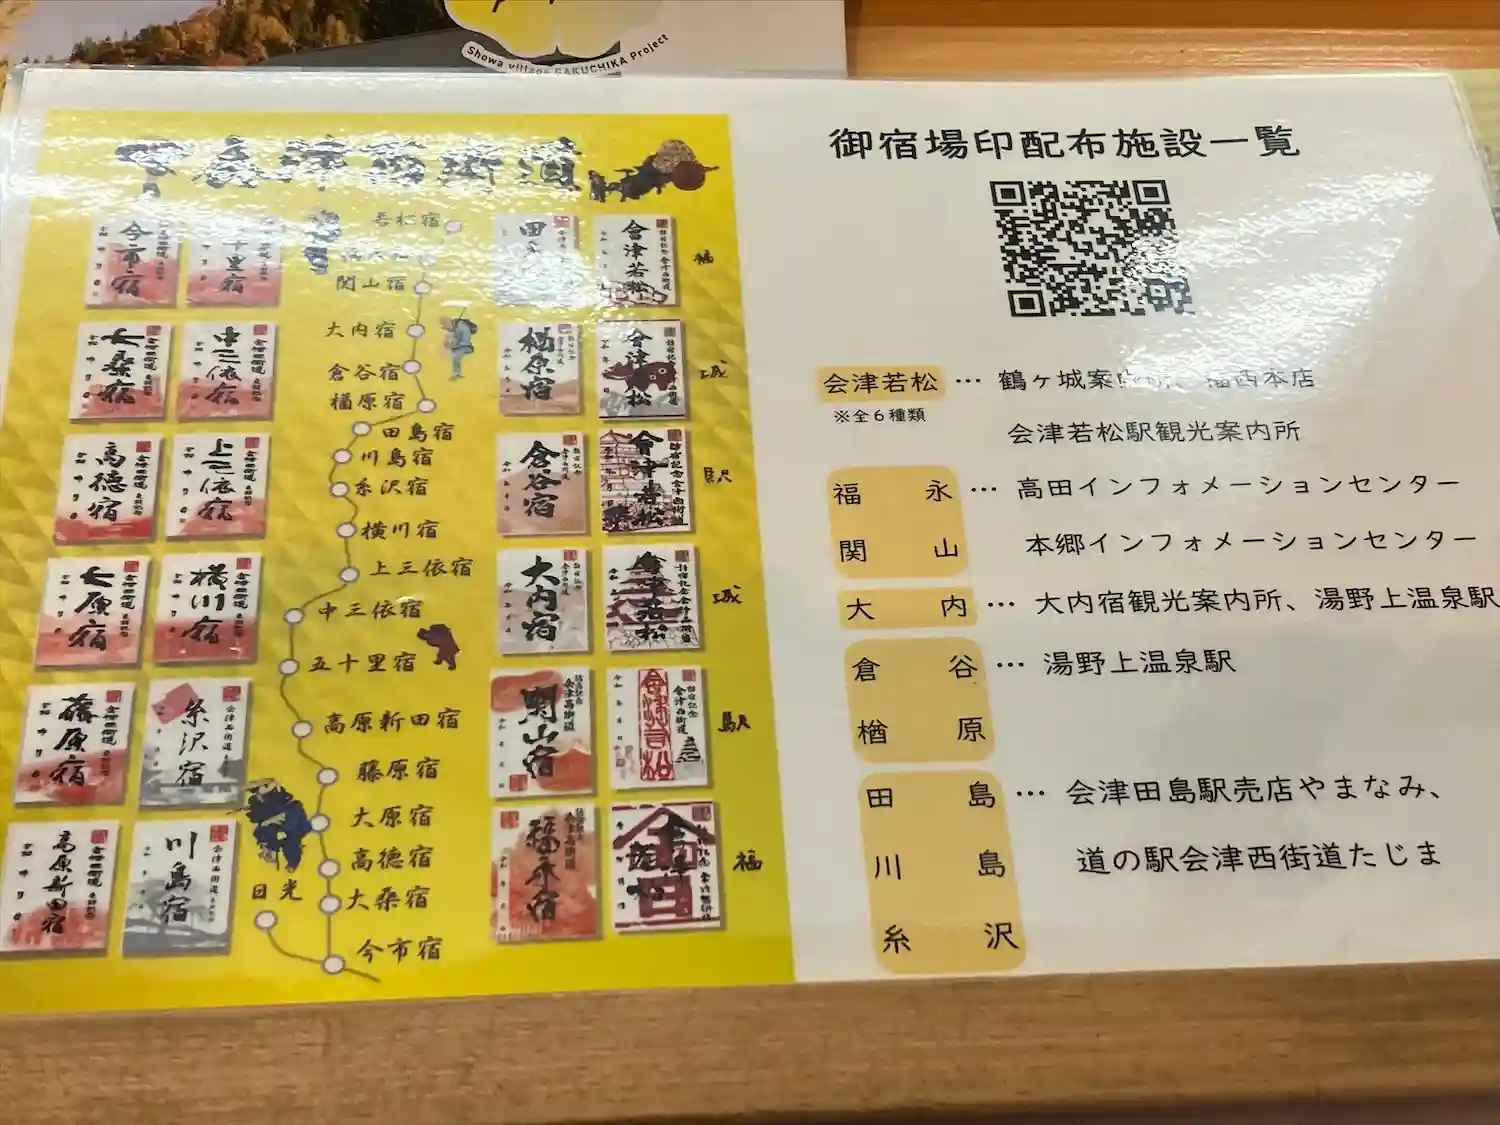 Showa village GAKUCHIKA Project
下会津西街道
若松宿
関山宿
大内宿
倉谷宿
楢原宿
田島宿
川島宿
糸沢宿
横川宿
上三依宿
中三依宿
五十里宿
高原新田宿
藤原宿
大原宿
高徳宿
大桑宿
今市宿
日光
今市宿
五十里宿
大桑宿
中三依宿
高徳宿
上三依宿
大原宿
横川宿
藤原宿
糸沢宿
高原新田宿
川島宿
会津若松
福
楢原宿
会津若松
城
倉谷宿
会津若松
駅
大内宿
会津若松
城
関山宿
会津若松
駅
福永宿
福
御宿場印配布施設一覧
会津若松 … 鶴ヶ城案内所、福西本店
※全6種類
会津若松駅観光案内所
福永 … 高田インフォメーションセンター
関山 本郷インフォメーションセンター
大内 … 大内宿観光案内所、湯野上温泉駅
倉谷 … 湯野上温泉駅
楢原
田島 … 会津田島駅売店やまなみ、
川島 道の駅会津西街道たじま
糸沢